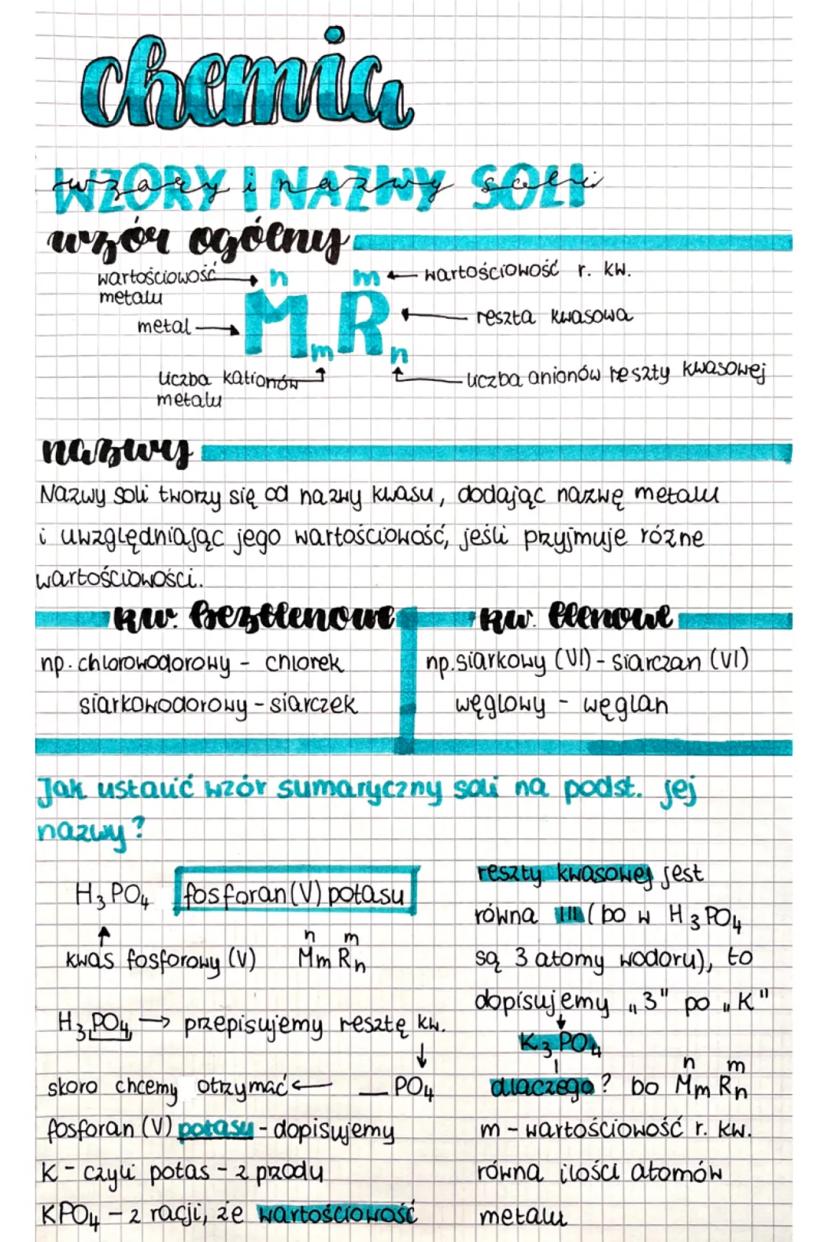 chemia
WZORY I NAZWY SOLI
wzory i nazwy soli
wzór ogólny
wartościowość
metalu
n
m
wartościowość r. kw.
metal
M m R n
reszta kwasowa
liczba kationów
metalu
liczba anionów reszty kwasowej
nazwy
Nazwy soli tworzy się od nazwy kwasu, dodając nazwę metalu
i uwzględniając jego wartościowość, jeśli przyjmuje różne
wartościowości.
kw. beztlenowe
np. chlorowodorowy - chlorek
siarkowodorowy - siarczek
kw. tlenowe
np. siarkowy (VI) - siarczan (VI)
węglowy - węglan
Jak ustalić wzór sumaryczny soli na podst. jej
nazwy?
H₃PO₄ fosforan (V) potasu
n m
kwas fosforowy (V) MmRn
H₃PO₄ → przepisujemy resztę kw.
skoro chcemy otrzymać ← _PO₄
fosforan (V) potasu - dopisujemy
K - czyli potas - z przodu
KPO₄ - z racji, że wartościowość
reszty kwasowej jest
równa III (bo w H₃PO₄
są 3 atomy wodoru), to
dopisujemy „3" po „K"
K₃PO₄
n m
dlaczego? bo MmRn
m - wartościowość r. kw.
równa ilości atomów
metalu